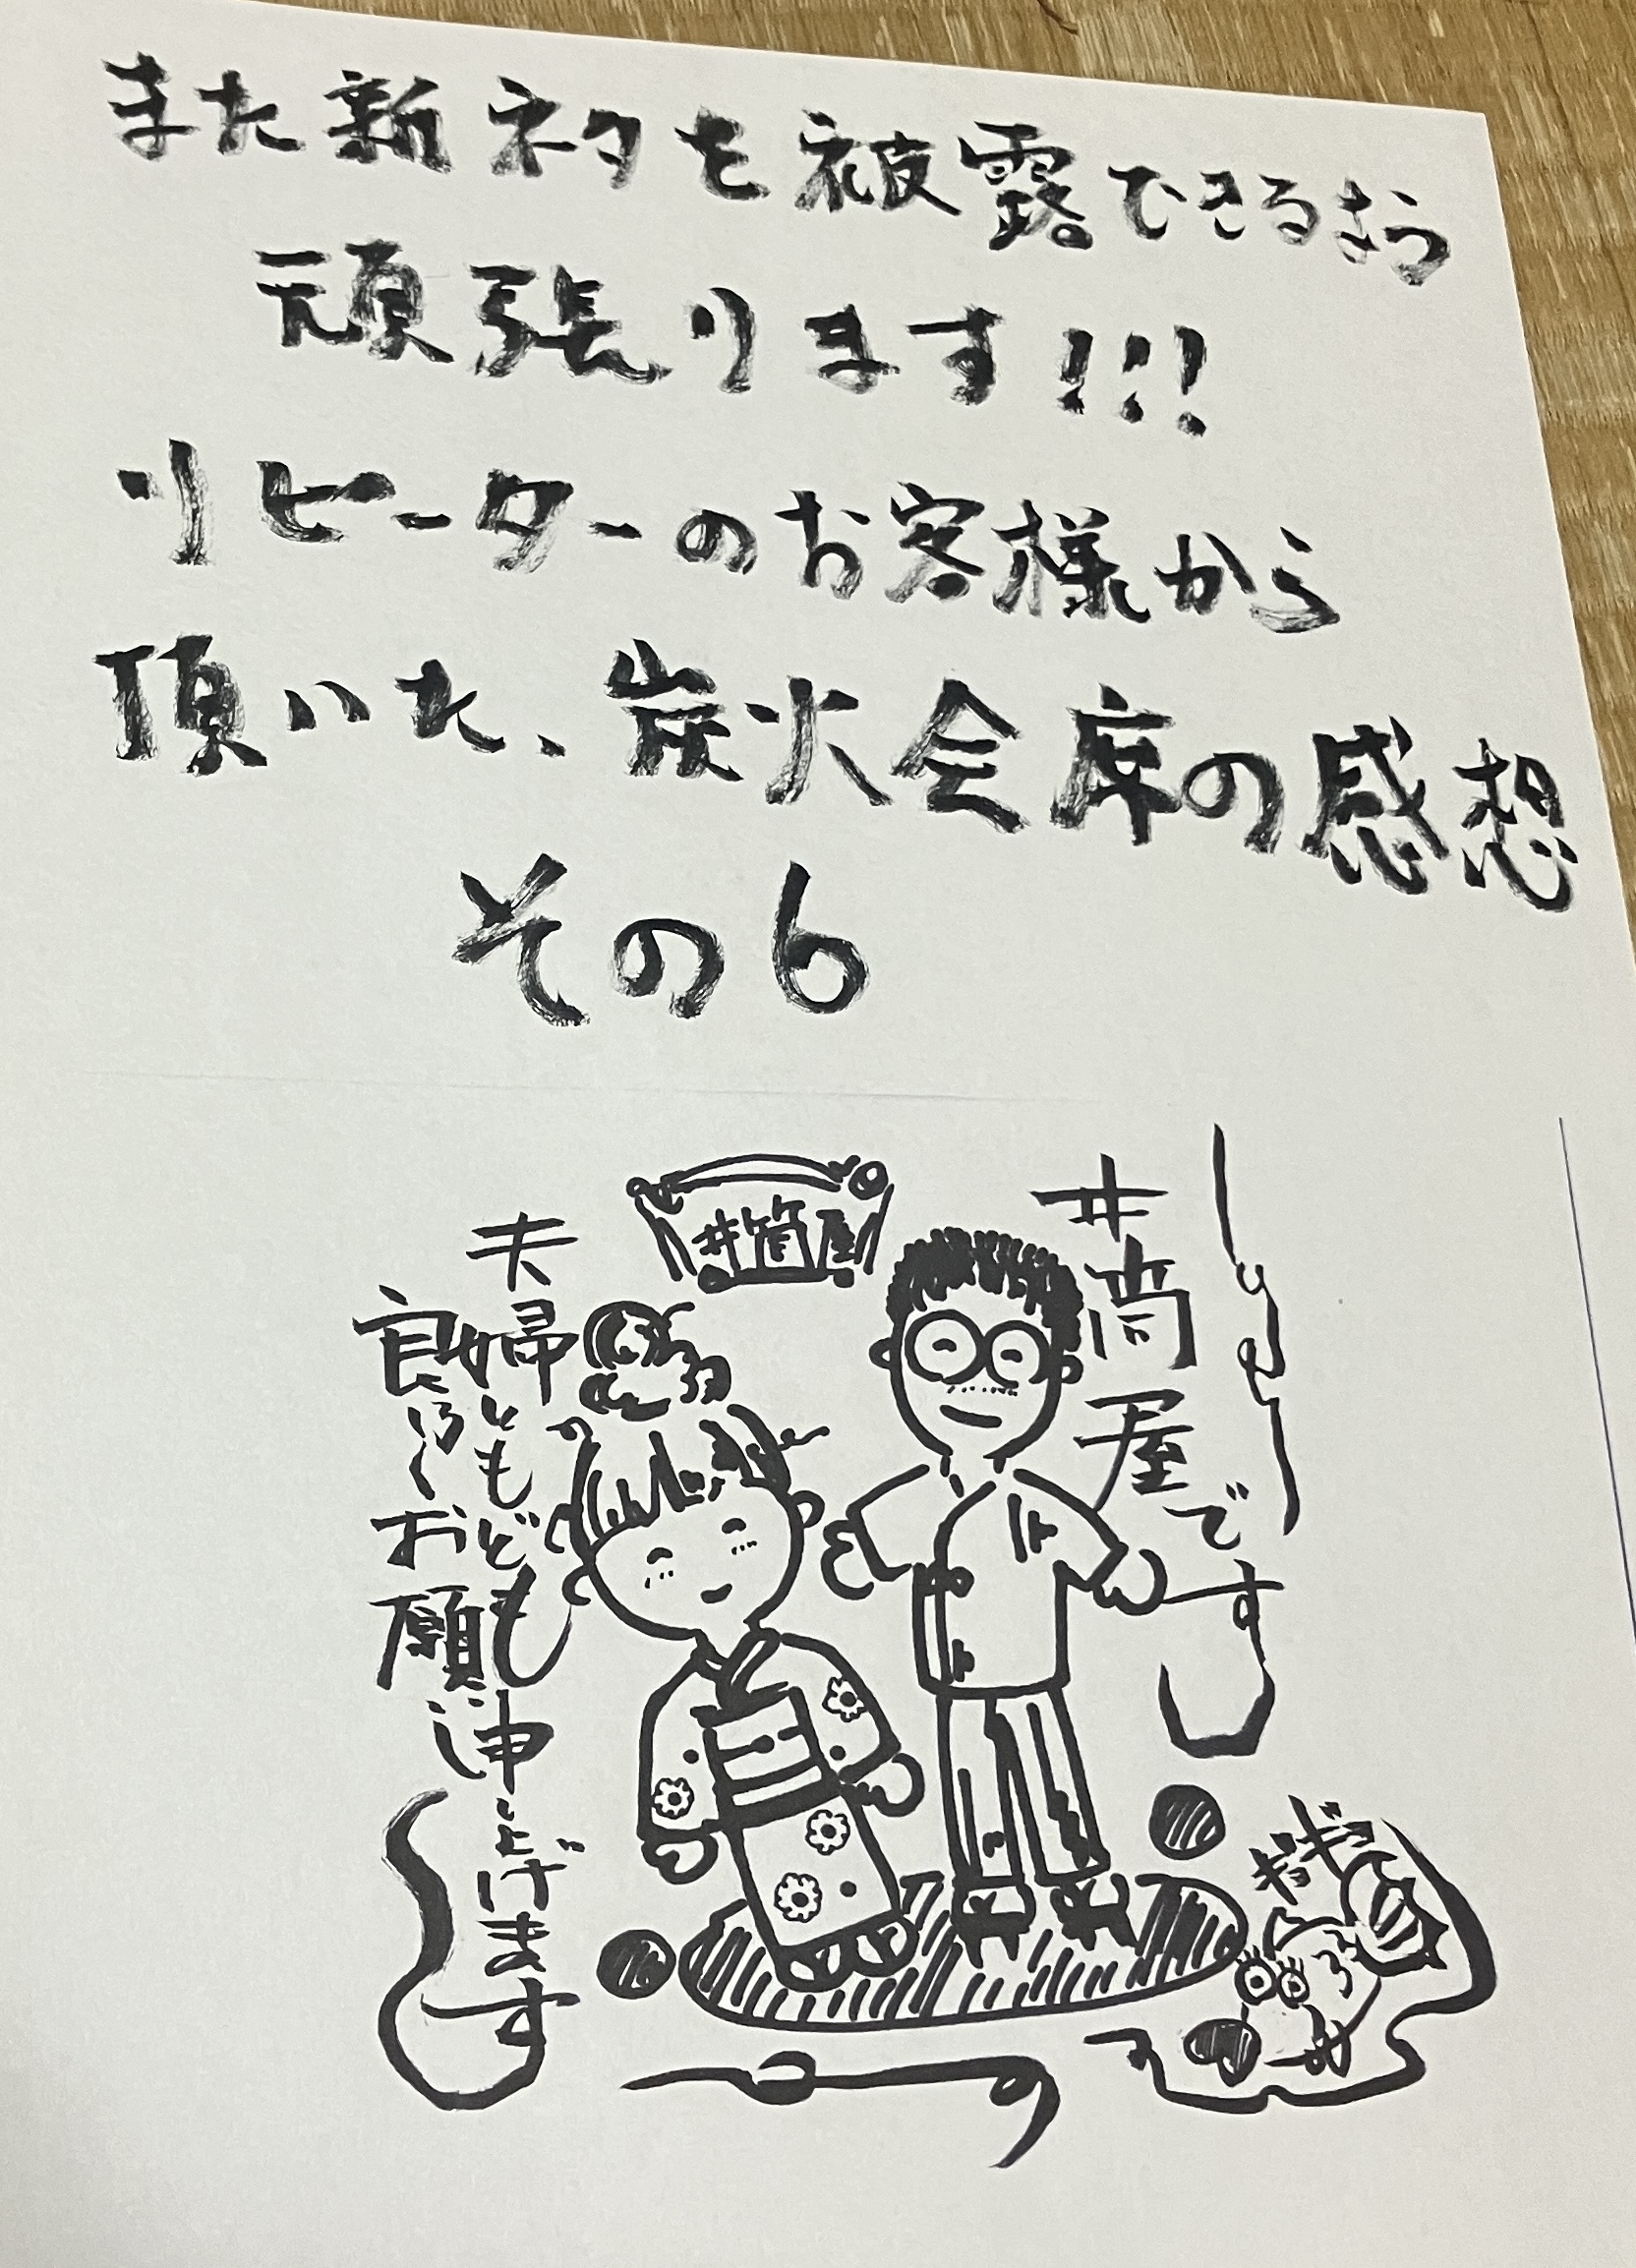 また新ネタを被露できるよう
頑張ります!!!
リピーターのお客様から
頂いた、炭火会席の感想
その6
井筒屋
井筒屋です
夫婦ともどもども
良ろしくお願い申し上げます
ギョギョ